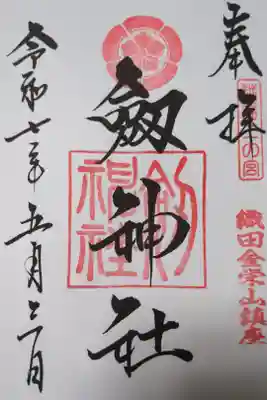 奉拝
織田金栄山鎮座
劔神社
劔神社
令和七年五月三一日